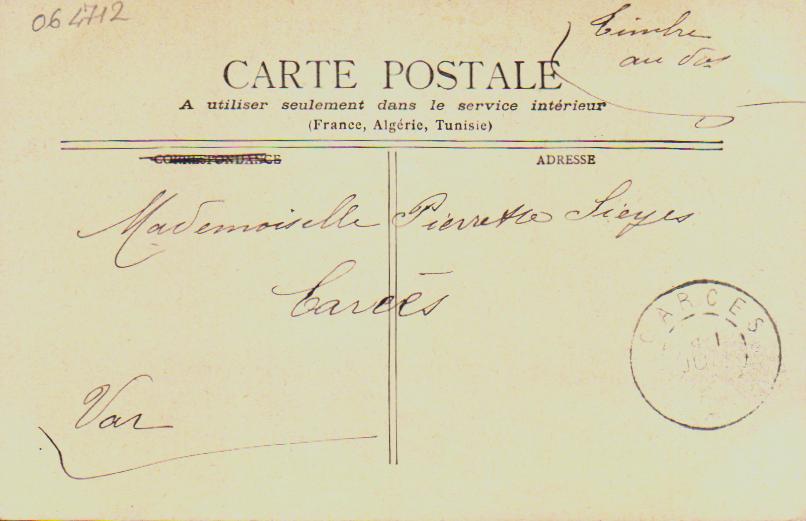 064712
Timbre
au dos
CARTE POSTALE
A utiliser seulement dans le service intérieur
(France, Algérie, Tunisie)
CORRESPONDANCE
ADRESSE
Mademoiselle Pierrette Sieyes
Carcès
CARCES
Var